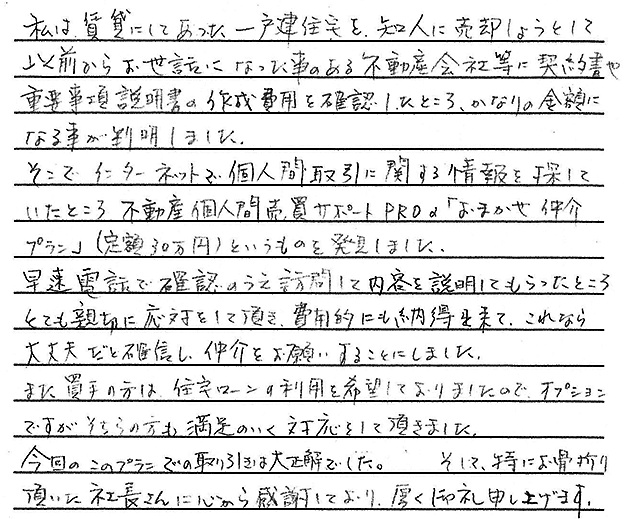 私は賃貸にしてあった一戸建住宅を、知人に売却しようとして
以前からお世話になった事のある不動産会社等に契約書や
重要事項説明書の作成費用を確認したところ、かなりの金額に
なる事が判明しました。
そこでインターネットで個人間取引に関する情報を探して
いたところ 不動産個人間売買サポートPROの「おまかせ仲介
プラン」(定額30万円)というものを発見しました。
早速電話で確認のうえ訪問して内容を説明してもらったところ
とても親切に応対をして頂き、費用的にも納得出来て、これなら
大丈夫だと確信し、仲介をお願いすることにしました。
また買手の方は、住宅ローンの利用を希望しておりましたので、オプション
ですがそちらの方も満足のいく対応をして頂きました。
今回のこのプランでの取り引きは大正解でした。 そして、特にお骨折り
頂いた社長さんに心から感謝しており、厚く御礼申し上げます。